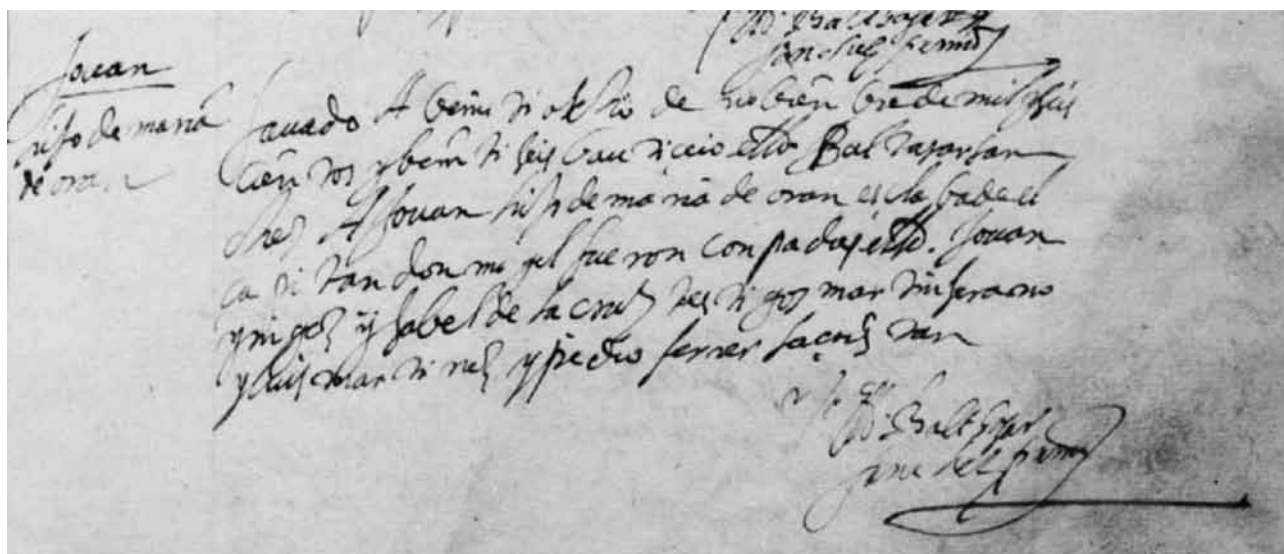 Bal
Sanchez
Jouan
hijo de maria
de oran
Sauado A beinti otcho de nobienbre de mil y seis
cientos y beinti seis bauticeio el ldo Baltasar san
chez A Jouan hijo de maria de oran esclaba de el
capitan don migel fueron conpadres el ldo. Jouan
ynigez y ysabel de la cruz testigos martin serano
y luis martinez y pedro ferrer sacristan
Baltasar